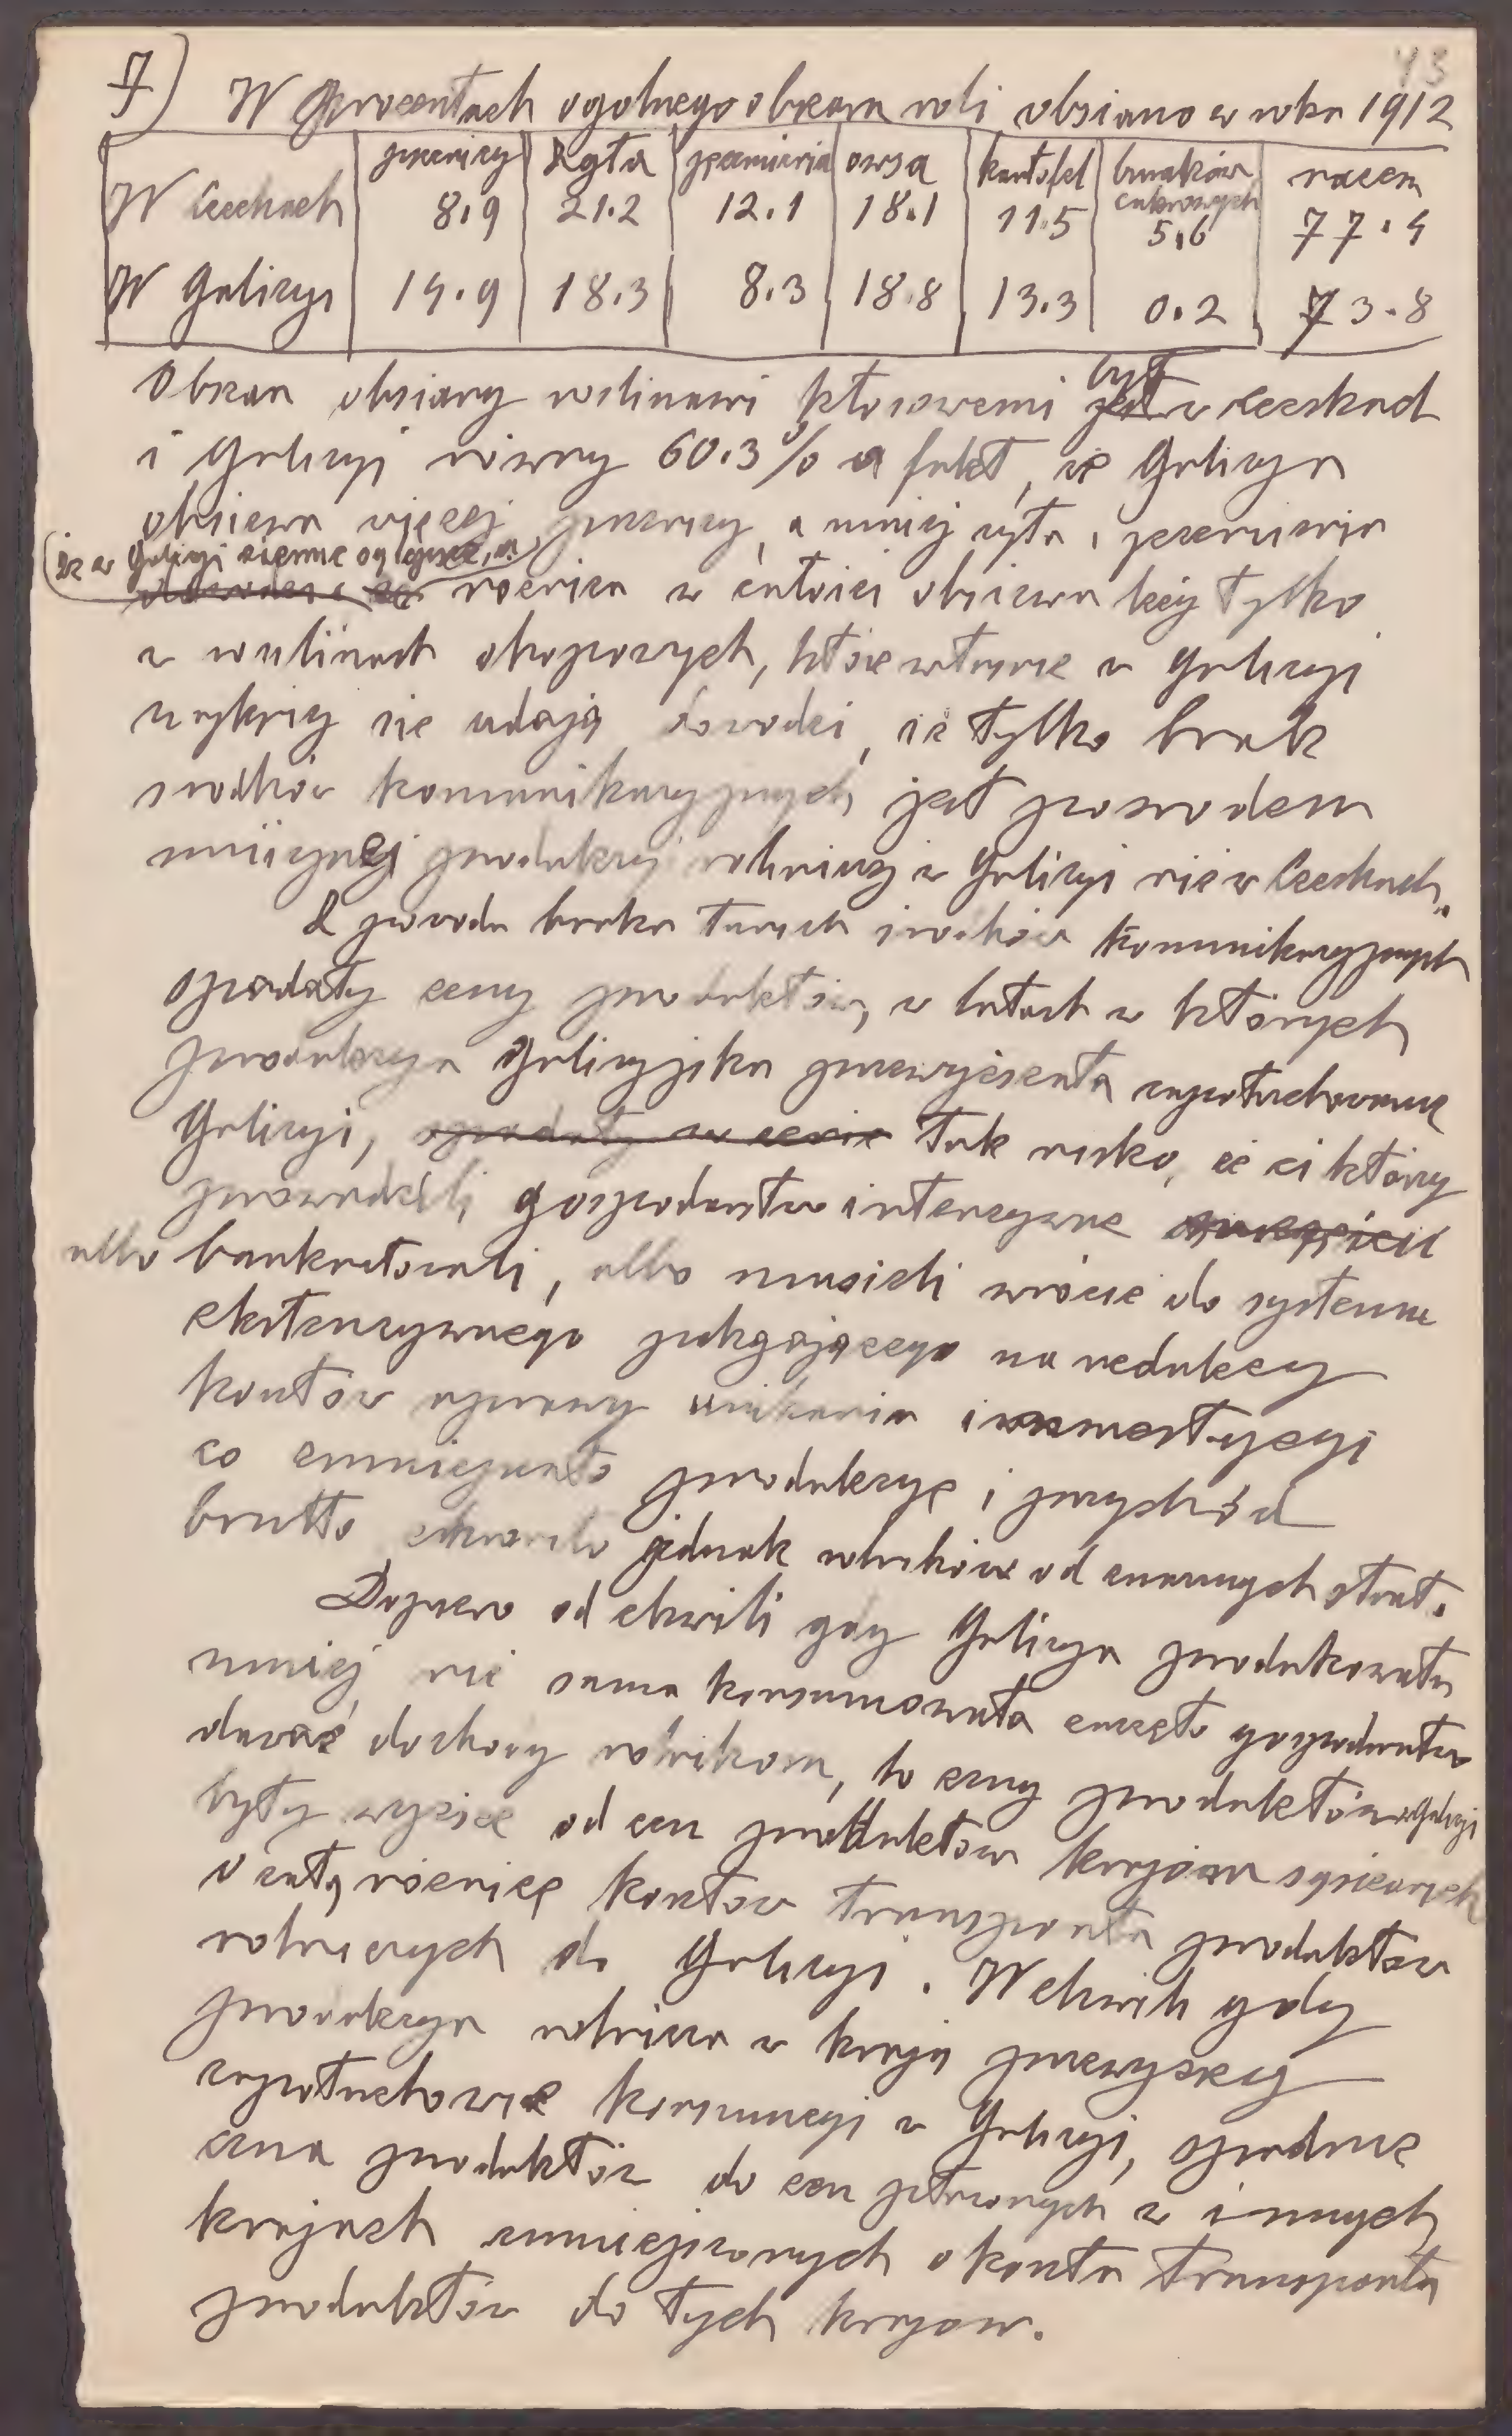 43
7) W procentach ogolnego obszaru roli obsiano w roku 1912
pszenicy żyta jęczmienia owsa kartofel buraków cukrowych razem
W Czechach 8.9 21.2 12.1 18.1 11.5 5.6 77.4
W Galicyi 14.9 18.3 8.3 18.8 13.3 0.2 73.8
Obszar obsiany roslinami kłosowemi jest był w Czechach
i Galicyi równy 60.3% a fakt, że Galicya
obsiewa więcej pszenicy, a mniej żyta i jęczmienia
że w Galicyi ziemie są lepsze, a
różnica w całości obsiewu leży tylko
w roslinach okopowych, które właśnie w Galicyi
najlepiej się udają dowodzi, iż tylko brak
srodków komunikacyjnych jest powodem
mniejszej produkcyj rolniczej w Galicyi niż w Czechach.
Z powodu braku tanich środków komunikacyjnych
spadały ceny produktów, w latach w których
produkcya Galicyjska przewyższała zapotrzebowanie
Galicyi, spadały w cenie tak nisko, że ci którzy
prowadzili gospodarstwo intenzywne
albo bankrutowali, albo musieli wrócić do systemu
ekstenzywnego polegającego na redukcy
kosztów uprawy unikania inwestycyi
co zmniejszało produkcyę i przychód
brutto chroniło jednak rolników od znacznych strat.
Dopiero od chwili gdy Galicya produkowała
mniej niż sama konsumowała zaczęło gospodarstwo
dawać dochody rolnikom, bo ceny produktów w Galicyi
były wyższe od cen produktów krajów sąsiednich
o całą różnicę kosztów transportu produktów
rolniczych do Galicyi. W chwili gdy
produkcya rolnicza w kraju przewyższy
zapotrzebowanie konsumcyi w Galicyi, spadnie
cena produktów do cen płaconych w innych
krajach zmniejszonych o koszta transportu
produktów do tych krajów.